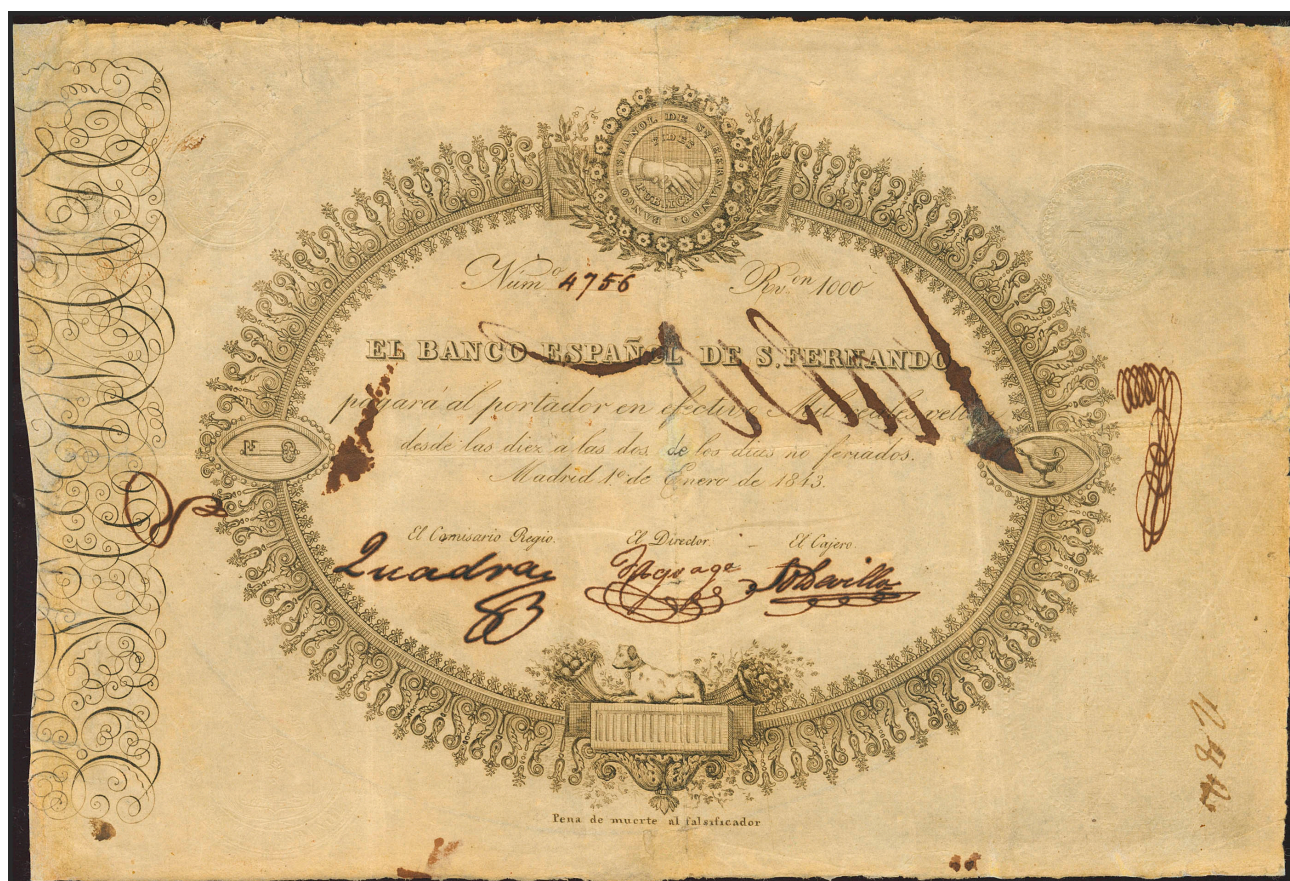 BANCO ESPAÑOL DE Sn. FERNANDO.
FIDES
PUBLICA
Núm.o 4756 R.von 1000
EL BANCO ESPAÑOL DE S. FERNANDO
pagará al portador en efectivo Mil reales vellon
desde las diez á las dos, de los dias no feriados.
Madrid 1º de Enero de 1843.
El Comisario Regio. El Director. El Cajero.
Quadra
Pena de muerte al falsificador